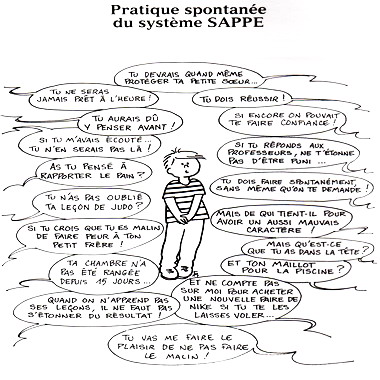 Pratique spontanée
du système SAPPE
TU DEVRAIS QUAND MÊME
PROTÉGER TA PETITE SŒUR...
TU NE SERAS
JAMAIS PRÊT À L'HEURE!
TU DOIS RÉUSSIR!
TU AURAIS DÛ
Y PENSER AVANT!
SI ENCORE ON POUVAIT
TE FAIRE CONFIANCE!
SI TU M'AVAIS ÉCOUTÉ...
TU N'EN SERAIS PAS LÀ!
SI TU RÉPONDS AUX
PROFESSEURS, NE T'ÉTONNE
PAS D'ÊTRE PUNI...
AS TU PENSÉ À
RAPPORTER LE PAIN?
TU DOIS FAIRE SPONTANÉMENT,
SANS MÊME QU'ON TE DEMANDE!
TU N'AS PAS OUBLIÉ
TA LEÇON DE JUDO?
MAIS DE QUI TIENT-IL POUR
AVOIR UN AUSSI MAUVAIS
CARACTÈRE!
SI TU CROIS QUE TU ES MALIN
DE FAIRE PEUR À TON
PETIT FRÈRE!
MAIS QU'EST-CE
QUE TU AS DANS LA TÊTE?
TA CHAMBRE N'A
PAS ÉTÉ RANGÉE
DEPUIS 15 JOURS...
ET TON MAILLOT
POUR LA PISCINE?
QUAND ON N'APPREND PAS
SES LEÇONS, IL NE FAUT PAS
S'ÉTONNER DU RÉSULTAT!
ET NE COMPTE PAS
SUR MOI POUR ACHETER
UNE NOUVELLE PAIRE DE
NIKE SI TU TE LES
LAISSES VOLER...
TU VAS ME FAIRE LE
PLAISIR DE NE PAS FAIRE
LE MALIN!